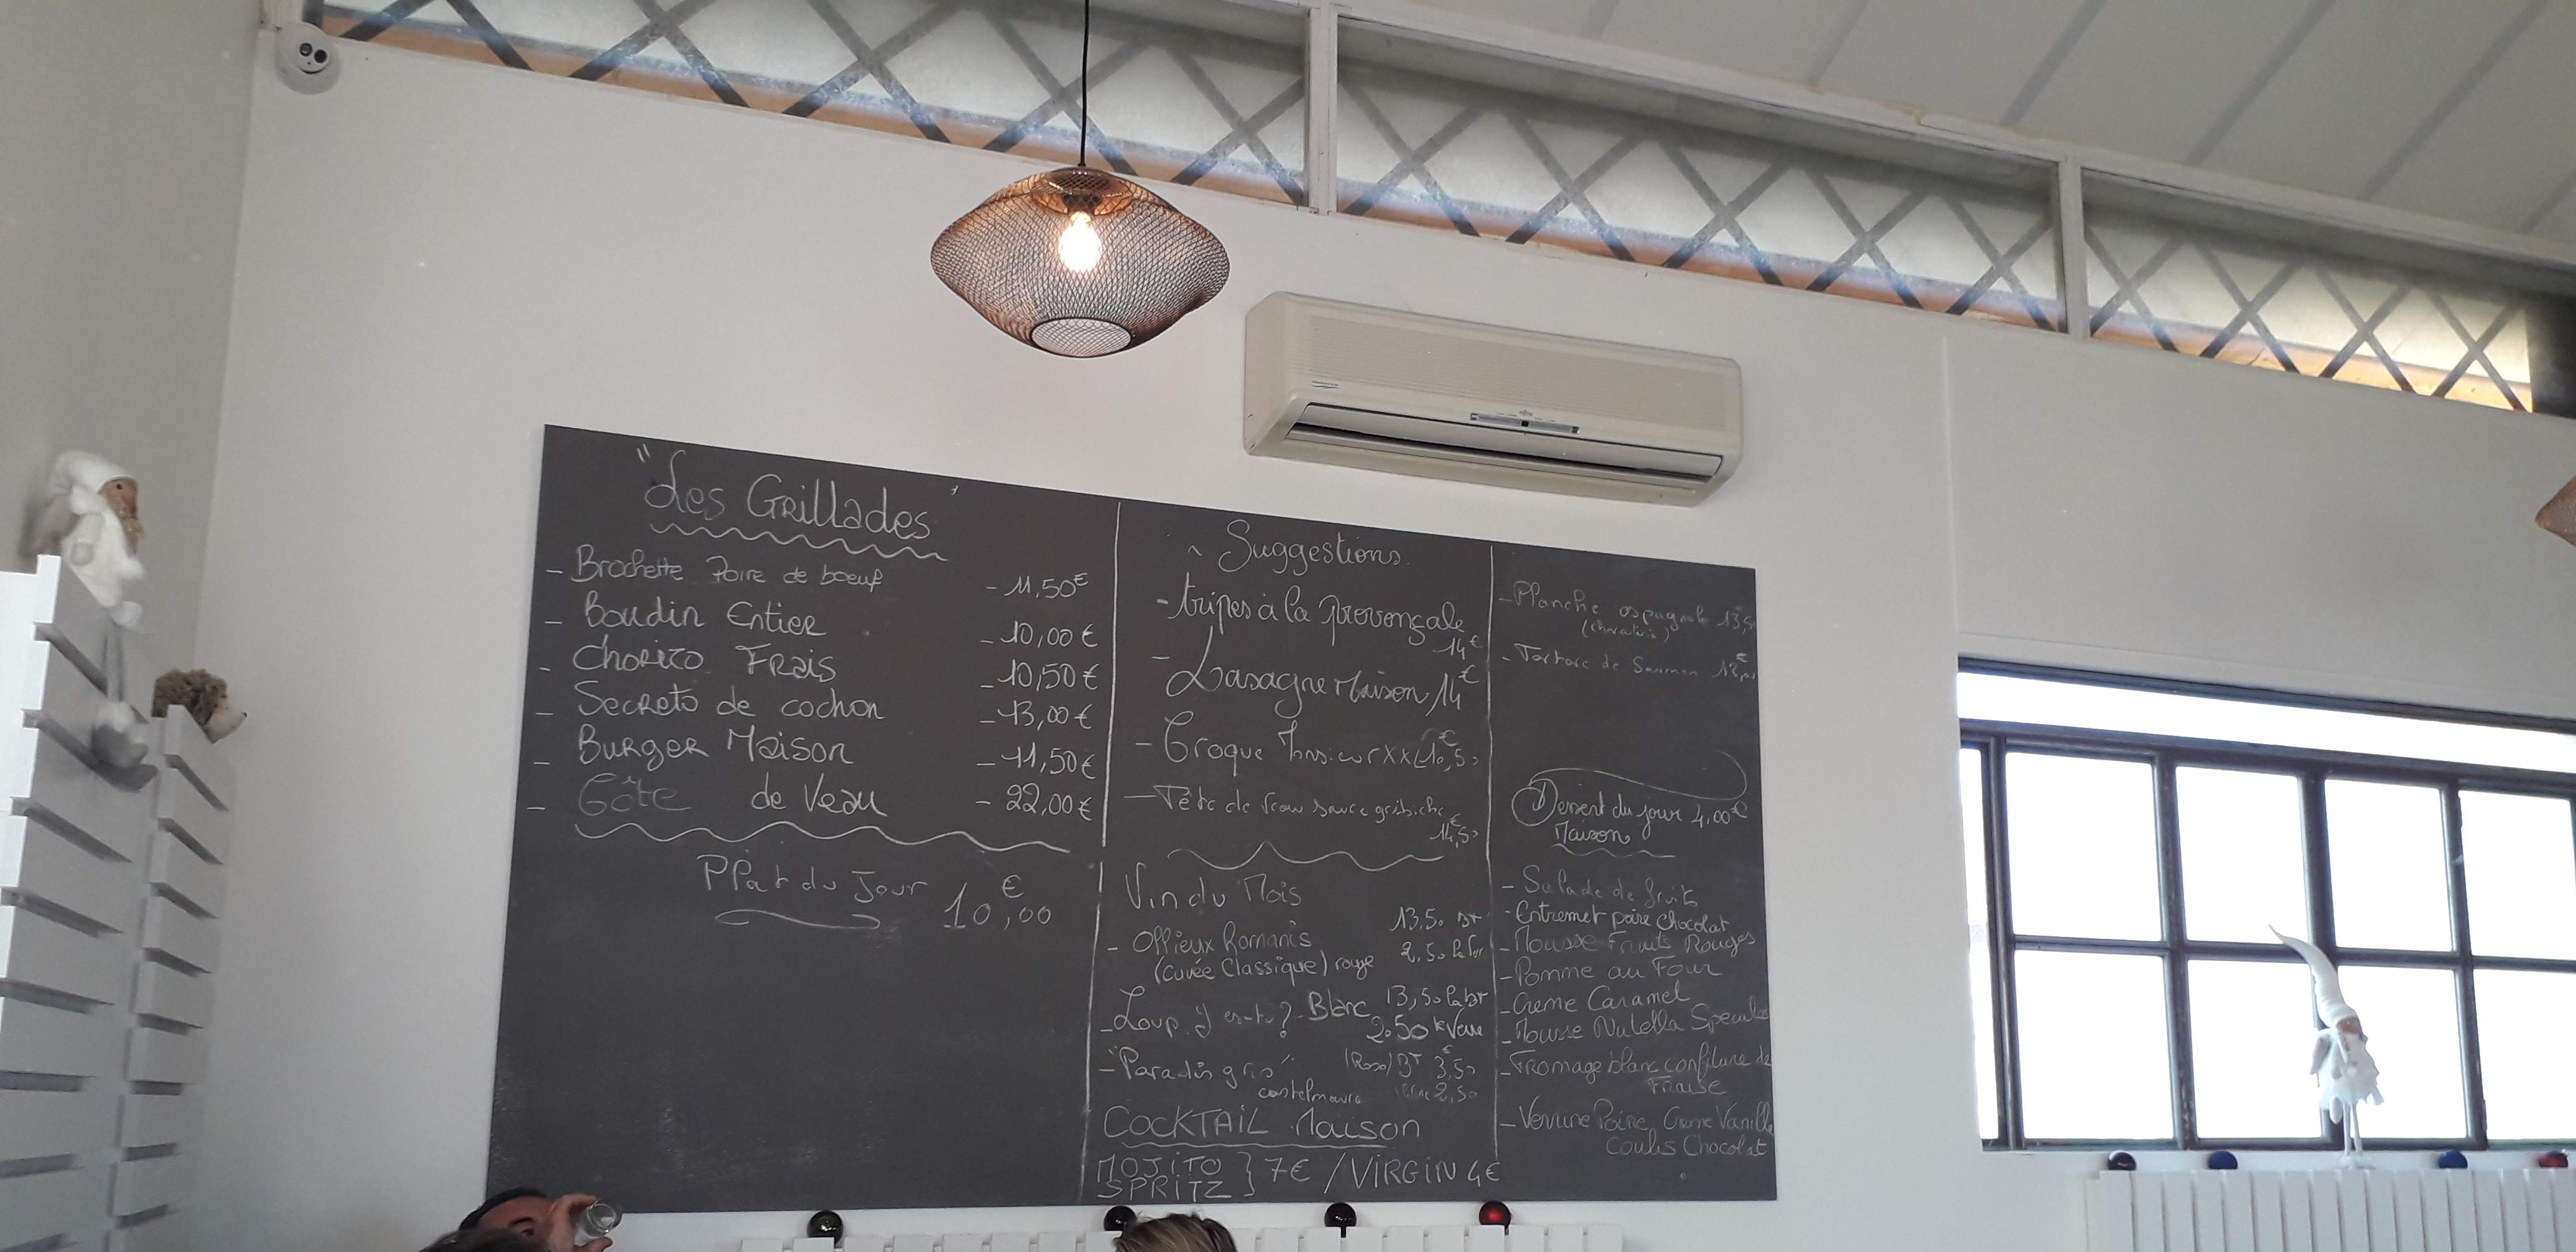 "Les Grillades"
- Brochette Poire de boeuf - 11,50€
- Boudin Entier - 10,00€
- Chorizo Frais - 10,50€
- Secreto de cochon - 13,00€
- Burger Maison - 11,50€
- Côte de Veau - 22,00€
Plat du Jour 10,00€
Suggestions
- tripes à la provençale
14€
- Lasagne Maison 14€
- Croque Monsieur XXL 10,50€
- Tête de veau sauce gribiche
14,50€
Vin du Mois
13,50 BT
- Ollieux Romanis
2,50 le Ver
(Cuvée Classique) rouge
- Loup y es-tu? Blanc 13,50 la bt
2.50 le Verre
- "Paradis gris" (Rosé) BT 3,50€
castelmaure 2,50
COCKTAIL Maison
MOJITO
SPRITZ } 7€ / VIRGIN 4€
- Planche espagnole 13,50
- Tartare de Saumon
Dessert du jour 4,00€
Maison
- Salade de fruits
- Entremet poire Chocolat
- Mousse Fruits Rouges
- Pomme au Four
- Creme Caramel
- Mousse Nutella Speculos
- Fromage blanc confiture de
Fraise
- Verrine Poire, Creme Vanille
Coulis Chocolat